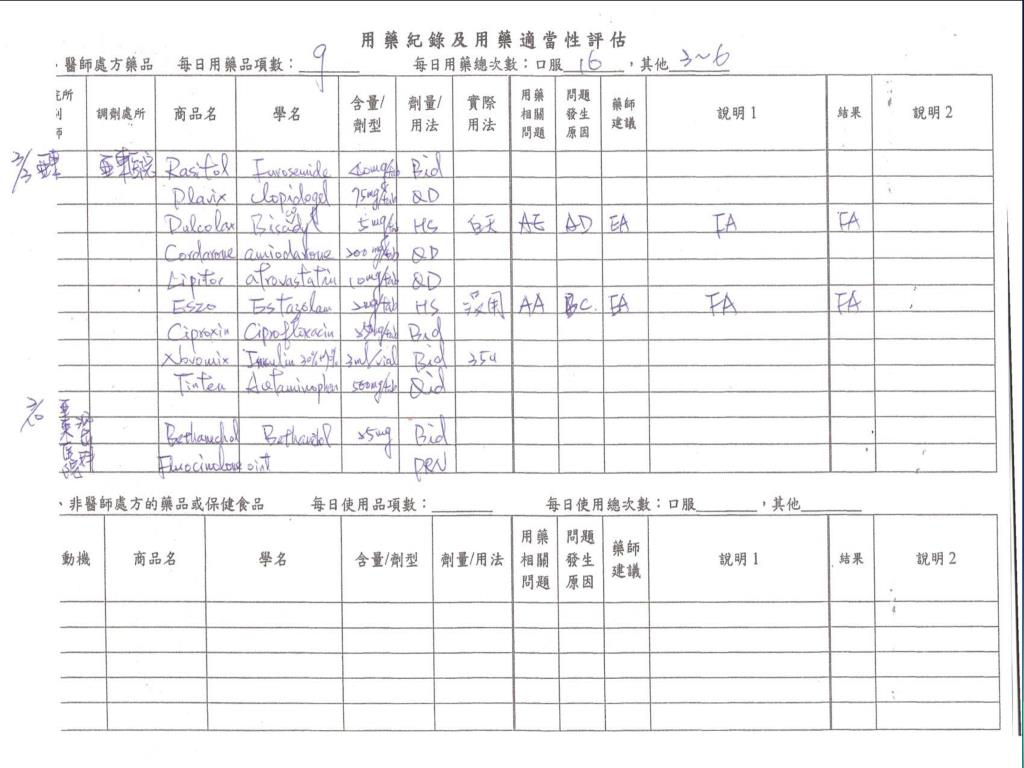 用藥紀錄及用藥適當性評估
、醫師處方藥品 每日用藥品項數：9 每日用藥總次數：口服 16 ，其他 3~6
院所 調劑處所 商品名 學名 含量/劑型 劑量/用法 實際用法 用藥相關問題 問題發生原因 藥師建議 說明1 結果 說明2
Rasitol Furosemide 40mg/tab Bid
Plavix clopidogel 75mg/tab QD
Dulcolax 5mg/tab HS 白天 AE AD EA FA FA
Cordarone amiodarone 200mg/tab QD
Lipitor atrovastatin 10mg/tab QD
Eszo Estazolam 2mg/tab HS 沒用 AA BC. EA FA FA
Ciproxin Ciprofloxacin Bid
Novomix Insulin 30% 3ml/vial Bid 35u
Tinten Acetaminophen 500mg/tab Qid
25mg Bid
Fluocinolone oint PRN
、非醫師處方的藥品或保健食品 每日使用品項數： 每日使用總次數：口服 ，其他
動機 商品名 學名 含量/劑型 劑量/用法 用藥相關問題 問題發生原因 藥師建議 說明1 結果 說明2